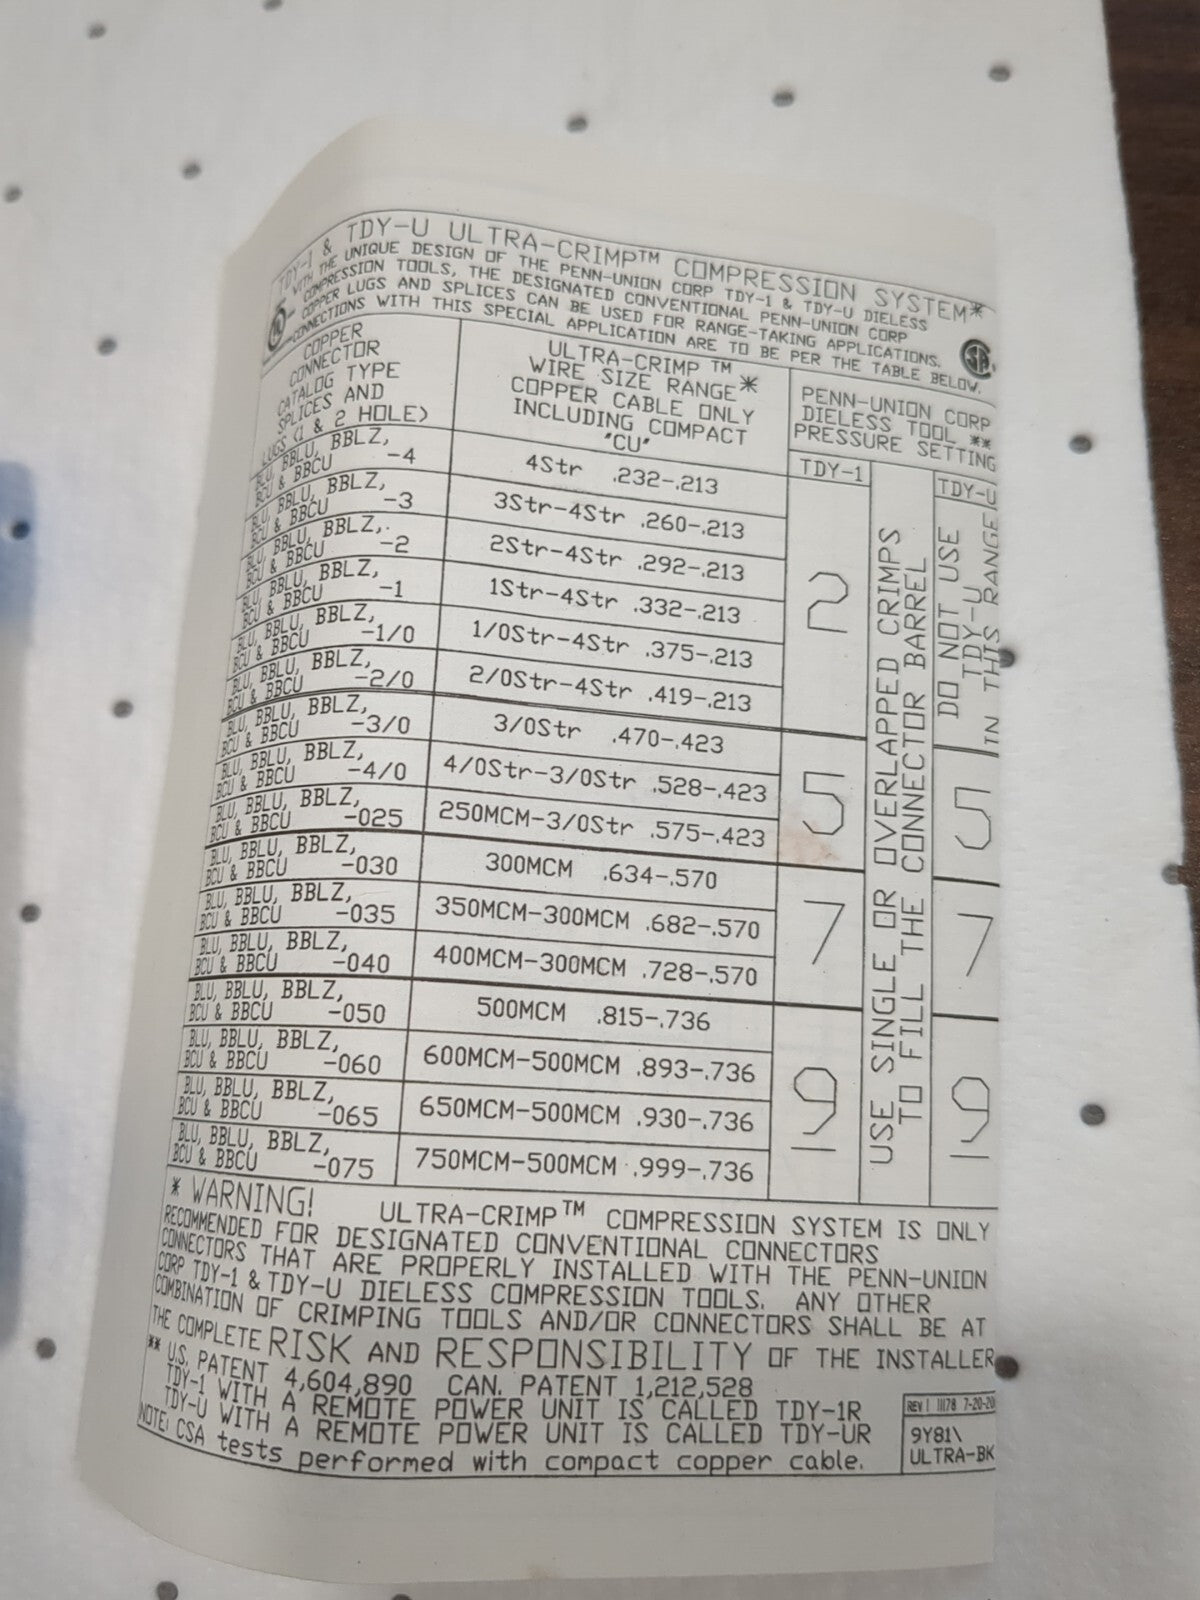 TDY-1 & TDY-U ULTRA-CRIMP™ COMPRESSION SYSTEM*
WITH THE UNIQUE DESIGN OF THE PENN-UNION CORP TDY-1 & TDY-U DIELESS
COMPRESSION TOOLS, THE DESIGNATED CONVENTIONAL PENN-UNION CORP
COPPER LUGS AND SPLICES CAN BE USED FOR RANGE-TAKING APPLICATIONS.
CONNECTIONS WITH THIS SPECIAL APPLICATION ARE TO BE PER THE TABLE BELOW.
UL
SA
COPPER
CONNECTOR
CATALOG TYPE
SPLICES AND
LUGS (1 & 2 HOLE)
ULTRA-CRIMP ™
WIRE SIZE RANGE*
COPPER CABLE ONLY
INCLUDING COMPACT
"CU"
PENN-UNION CORP
DIELESS TOOL **
PRESSURE SETTING
TDY-1
TDY-U
BLU, BBLU, BBLZ,
BCU & BBCU -4
4Str .232-.213
BLU, BBLU, BBLZ,
BCU & BBCU -3
3Str-4Str .260-.213
BLU, BBLU, BBLZ,
BCU & BBCU -2
2Str-4Str .292-.213
BLU, BBLU, BBLZ,
BCU & BBCU -1
1Str-4Str .332-.213
BLU, BBLU, BBLZ,
BCU & BBCU -1/0
1/0Str-4Str .375-.213
BLU, BBLU, BBLZ,
BCU & BBCU -2/0
2/0Str-4Str .419-.213
2
DO NOT USE
TDY-U
IN THIS RANGE
BLU, BBLU, BBLZ,
BCU & BBCU -3/0
3/0Str .470-.423
BLU, BBLU, BBLZ,
BCU & BBCU -4/0
4/0Str-3/0Str .528-.423
BLU, BBLU, BBLZ,
BCU & BBCU -025
250MCM-3/0Str .575-.423
5
5
BLU, BBLU, BBLZ,
BCU & BBCU -030
300MCM .634-.570
BLU, BBLU, BBLZ,
BCU & BBCU -035
350MCM-300MCM .682-.570
BLU, BBLU, BBLZ,
BCU & BBCU -040
400MCM-300MCM .728-.570
7
7
BLU, BBLU, BBLZ,
BCU & BBCU -050
500MCM .815-.736
BLU, BBLU, BBLZ,
BCU & BBCU -060
600MCM-500MCM .893-.736
BLU, BBLU, BBLZ,
BCU & BBCU -065
650MCM-500MCM .930-.736
BLU, BBLU, BBLZ,
BCU & BBCU -075
750MCM-500MCM .999-.736
9
9
USE SINGLE OR OVERLAPPED CRIMPS
TO FILL THE CONNECTOR BARREL
* WARNING! ULTRA-CRIMP™ COMPRESSION SYSTEM IS ONLY
RECOMMENDED FOR DESIGNATED CONVENTIONAL CONNECTORS
CONNECTORS THAT ARE PROPERLY INSTALLED WITH THE PENN-UNION
CORP TDY-1 & TDY-U DIELESS COMPRESSION TOOLS. ANY OTHER
COMBINATION OF CRIMPING TOOLS AND/OR CONNECTORS SHALL BE AT
THE COMPLETE RISK AND RESPONSIBILITY OF THE INSTALLER
** U.S. PATENT 4,604,890 CAN. PATENT 1,212,528
TDY-1 WITH A REMOTE POWER UNIT IS CALLED TDY-1R
TDY-U WITH A REMOTE POWER UNIT IS CALLED TDY-UR
NOTE: CSA tests performed with compact copper cable.
REV 1 11178 7-20-20
9Y81\
ULTRA-BK